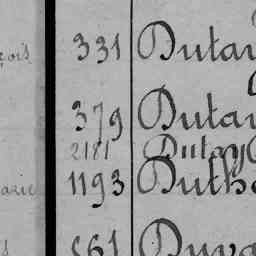 331 Dutai
379 Dutai
2181 Dutay
arie 1193 Duth
561 Duva